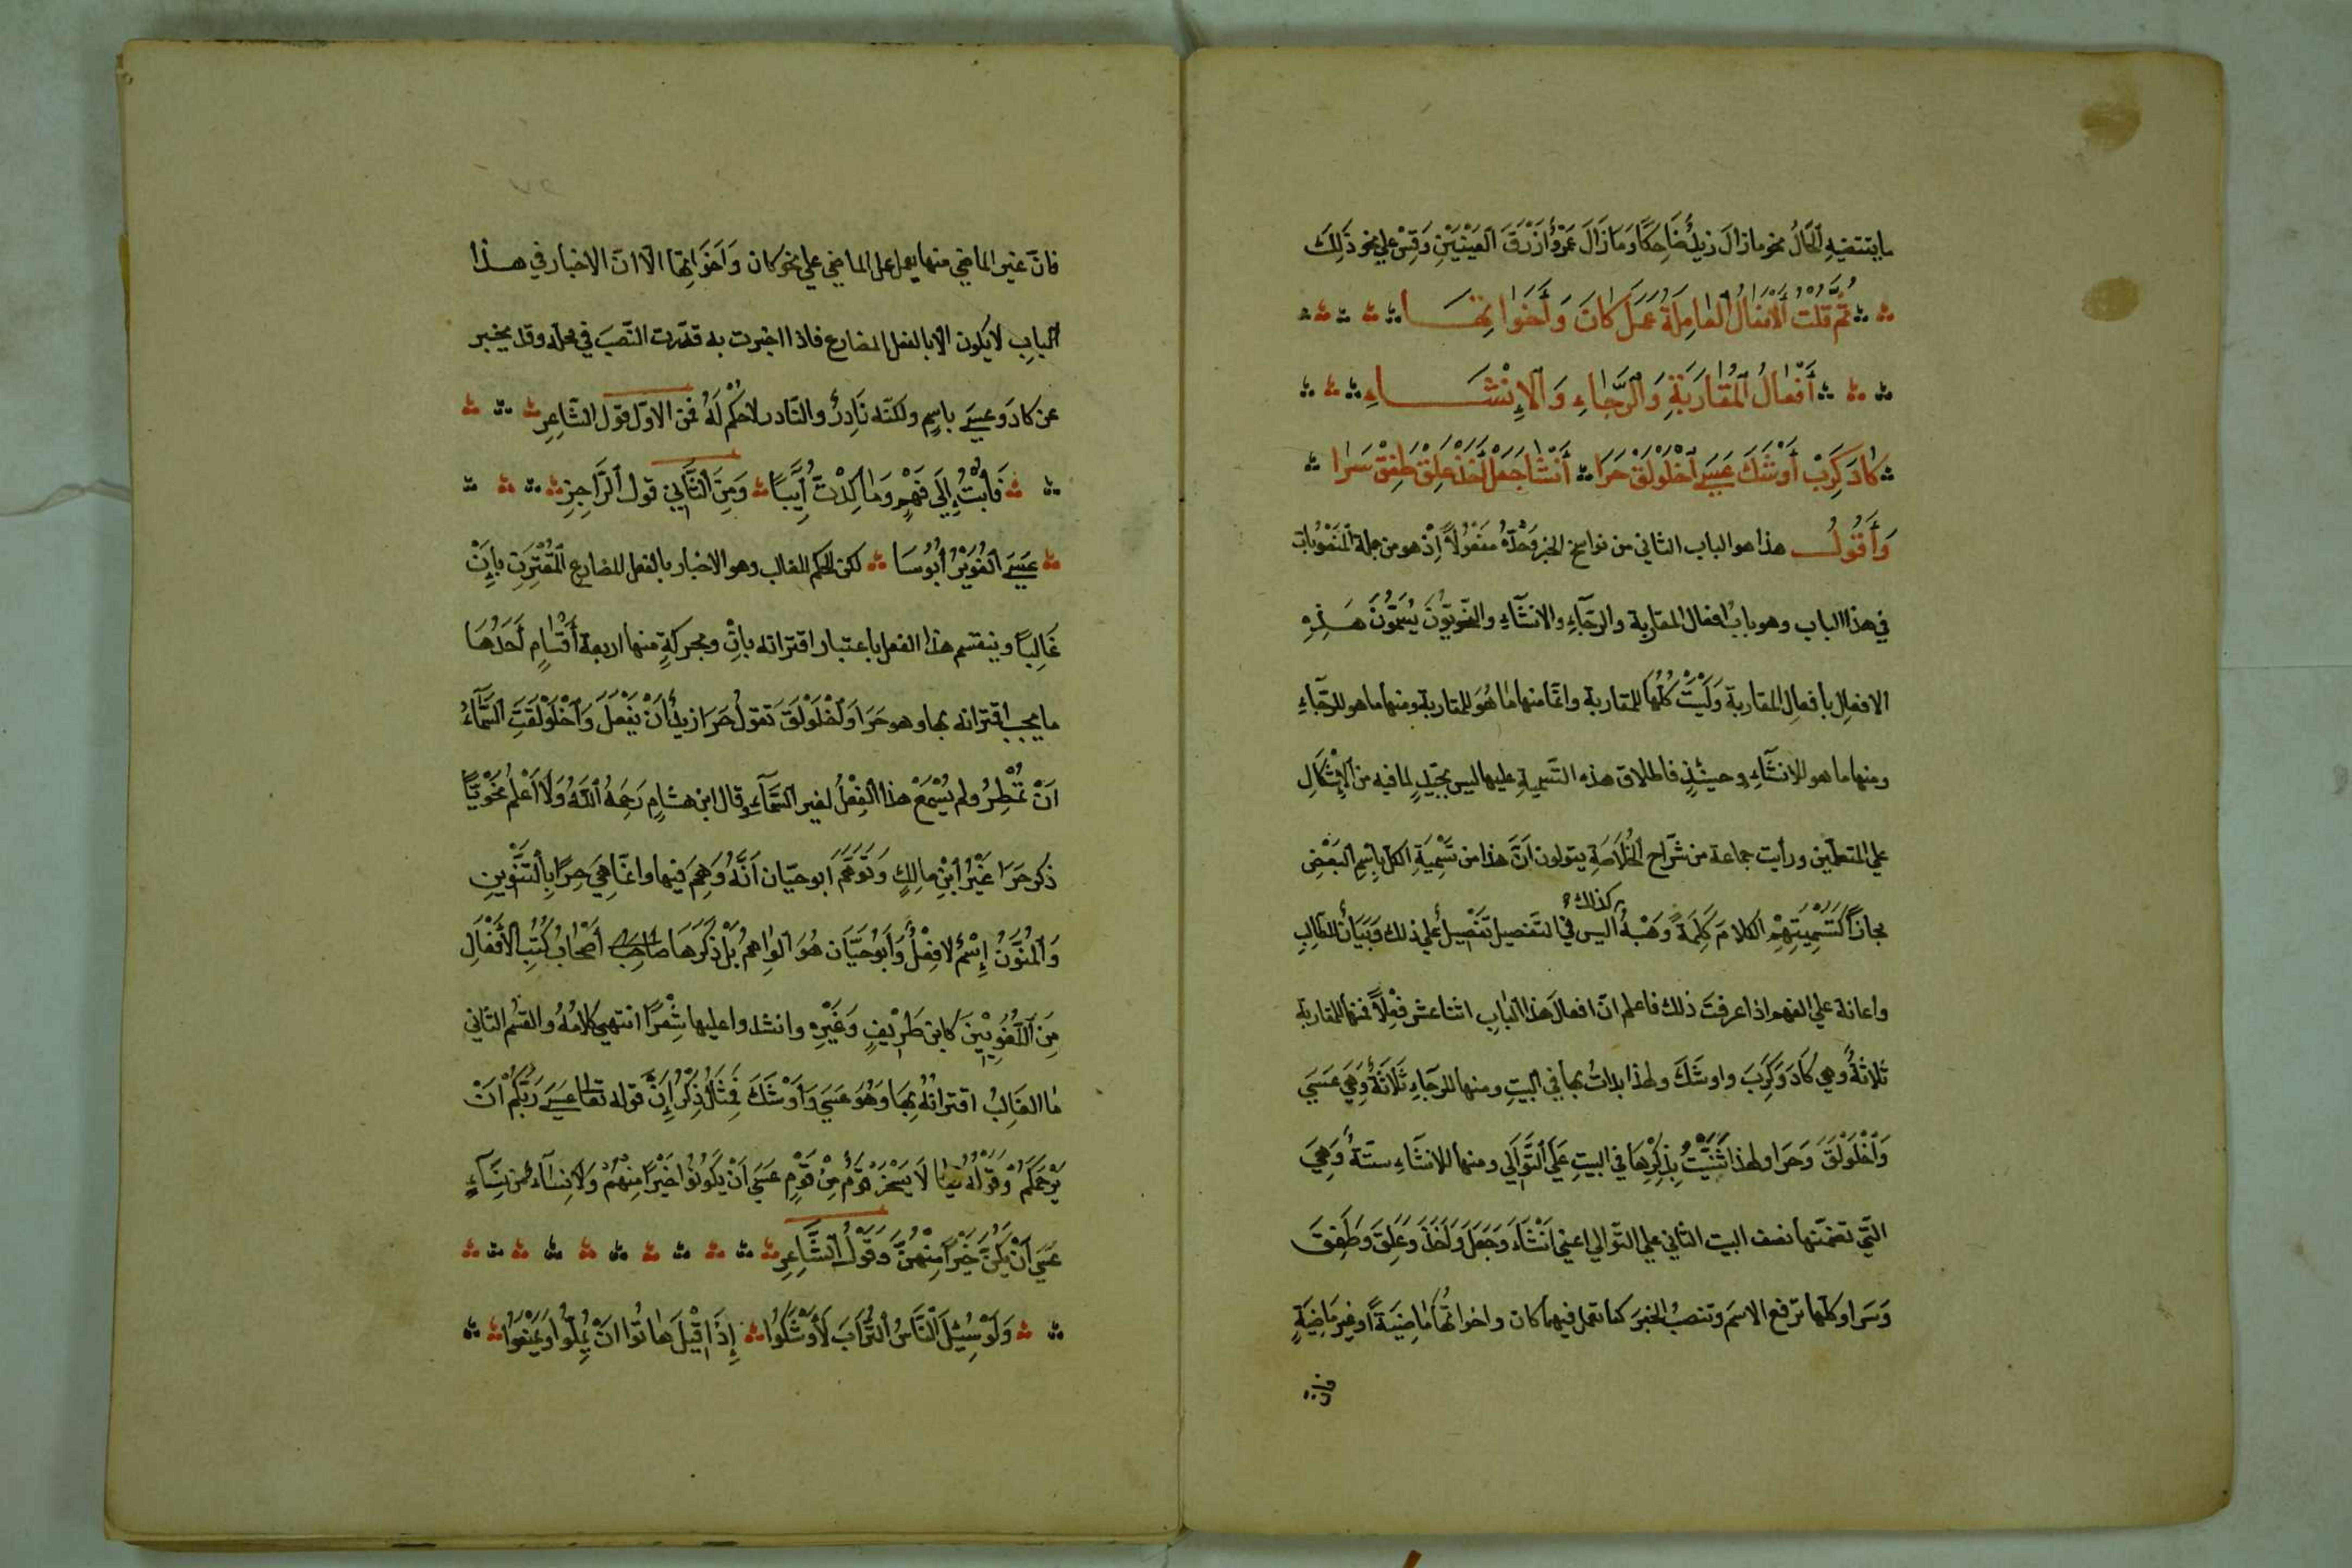 ما يقتضيه الحَالُ نحو ما زال زيدٌ ضَاحِكًا وَمَا زَالَ عَمْرٌو أَزْرَقَ العَيْنَيْنِ وَقِسْ علي نحو ذَلِكَ
ثُمَّ قُلْتُ الأَفْعَالُ العَامِلَةُ عَمَلَ كَانَ وَأَخَوَاتِهَا
أَفْعالُ المُقَارَبَةِ وَالرَّجَاءِ وَالإِنْشَاءِ
كَادَ كَرَبْ أَوْشَكَ عَسَيَ اخْلَوْلَقْ حَرَا أَنْشَا جَعَلْ أَخَذْ عَلِقْ طَفِقْ سَرَا
وَأَقُولُ هذا هو الباب الثاني من نواسخ الخبر وَحْدَهُ مَنْقُولاً إِذْ هو من جملة المَنْصُوبات
في هذا الباب وهو بابُ افعال المقاربة والرجَاءِ والانشَاءِ والنَّحْوِيّونَ يُسَمُّونَ هَذِهِ
الافعال بافعالِ المقاربة وَلَيْسَتْ كُلّهَا للمقاربة وانّما منها ما هُوَ للمقاربة ومنها ما هو للرجَاءِ
ومنها ما هو للانشَاءِ وحينئذٍ فاطلاق هذه التَّسْمِيةِ عليها ليس بجَيّدٍ لما فيه من الإِشْكَالِ
علي المتعلّمين ورأيت جماعة من شرّاح الخُلَاصَةِ يقولون انَّ هذا من تَسْمِيَةِ الكلّ بِاسْمِ البَعْضِ
مجازًا كَتَسْمِيَتِهِمْ الكلامَ كَلِمَةً وَهَبْهُ كذلك اليس في التَفصيل تَفْضِيلٌ علي ذلك وَبَيَانٌ للطّالبِ
واعانة علي الفهم اذا عرفتَ ذلك فاعلم انّ افعالَ هذا البابِ اثنا عشر فِعْلاً فمنها للمقاربة
ثَلاثةٌ وهي كَادَ وَكَرَبَ واوشَكَ ولهذا بدات بها في البيتِ ومنها للرجَاءِ ثَلَاثَةٌ وَهِيَ عَسَي
وَاخْلَوْلَقَ وَحَرَا ولهذا ثَنَّيْتُ بِذِكْرِهَا في البيتِ عَلَي التَّوَالِي ومنها للانشَاءِ ستّةٌ وَهِيَ
التّي تضمّنها نصف البيت الثّاني علي التّوالي اعني أَنْشَاءَ وَجَعَلَ وَأَخَذَ وَعَلِقَ وَطَفِقَ
وَسَرَا وكلّها ترفع الاسمَ وتنصبُ الخبرَ كما تعمل فيهما كان واخواتُهَا مَاضِيَةً أو غير مَاضِيَةٍ
فانّ
فانّ غير الماضي منها يعمل عمل الماضي علي نحو كان وَأَخَوَاتِهَا الّا انّ الاخبار في هذا
البابِ لا يكون الّا بالفعل المضارع فاذا اخبرت به قدّرت النّصبَ في محلّه وقد يخبر
عن كادَ وعَسَيَ باسمٍ ولكنّه نَادِرٌ والنّادر لا حُكْمَ لَهُ فمن الاوّل قول الشّاعِرِ
فَأُبْتُ إِلَي فَهْمٍ وَمَا كِدْتُ أَيِّبًا وَمِنَ الثَّانِي قول الرَّاجِزِ
عَسَيَ الغُوَيْرُ أَبْوُسَا لكن الحكم للغالب وهو الاخبار بالفعل المضارع المُقْتَرِنِ بِأَنْ
غَالِبًا وينقسم هذا الفعل باعتبار اقترانه بِانْ وتجرّدهِ منها اربعة أَقْسَامٍ أَحَدُهَا
ما يجب اقترانه بها وهو حَرَا وَاخْلَوْلَقَ تقولُ حَرَا زيدٌ أَنْ يَفْعَلَ وَاخْلَوْلَقَتِ السَّمَاءُ
انْ تُمْطِرَ ولم يُسْمَعْ هذا الفِعْلُ لغير السَّمَاءِ وقال ابن هشامٍ رَحِمَهُ اللّهُ وَلَا أَعْلَمُ نَحْوِيًّا
ذكر حَرَا غَيْرَ ابْنِ مالِكٍ وَتَوَهَّمَ ابو حيّان أَنَّهُ وَهِمَ فيها وانّما هِيَ حِرًا بِالتَّنْوِينِ
وَالمُنَوَّنُ إِسْمٌ لا فِعْلٌ وَأَبُو حَيَّان هُوَ الوَاهِمُ بَلْ ذَكَرَهَا أَصْحَابُ كُتُبِ الأَفْعَالِ
مِنَ اللُّغَوِيِّينَ كابن طَرِيْفٍ وَغَيْرِهِ وانشدوا عليها شِعْرًا انتهي كلامُهُ والقسْم الثّاني
ما الغَالِبُ اقترانُهُ بِهَا وَهُوَ عسَي وَأَوْشَكَ فَمِثَالُ ذِكْرِ أَنْ قوله تعالي عَسَي رَبُّكُمْ أَنْ
يَرْحَمَكُمْ وَقَوْلُهُ تعالي لَا يَسْخَرْ قَوْمٌ مِنْ قَوْمٍ عَسَي أَنْ يَكُونُوا خَيْرًا مِنْهُمْ وَلَا نِسَاءٌ مِن نِّسَاءٍ
عَسَي أَنْ يَكُنَّ خَيْرًا مِنْهُنَّ وَقَوْلُ الشَّاعِرِ
وَلَوْ سُئِلَ النَّاسُ التُّرَابَ لَأَوْشَكُوا إِذَا قِيْلَ هَاتُوا انْ يَمَلُّوا وَيَمْنَعُوا